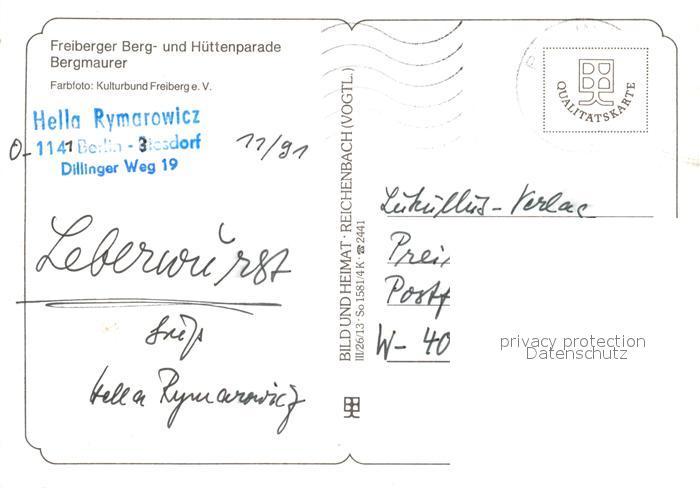 Freiberger Berg- und Hüttenparade
Bergmaurer
Farbfoto: Kulturbund Freiberg e. V.
Hella Rymarowicz
O-1141 Berlin - Biesdorf
Dillinger Weg 19
11/91
Leberwurst
Hella Rymarowicz
BILD UND HEIMAT · REICHENBACH (VOGTL.)
III/26/13 · So 1581/4 K · ☎ 2441
QUALITÄTSKARTE
Lukullus-Verlag
Prei
Postf
W- 40
privacy protection
Datenschutz